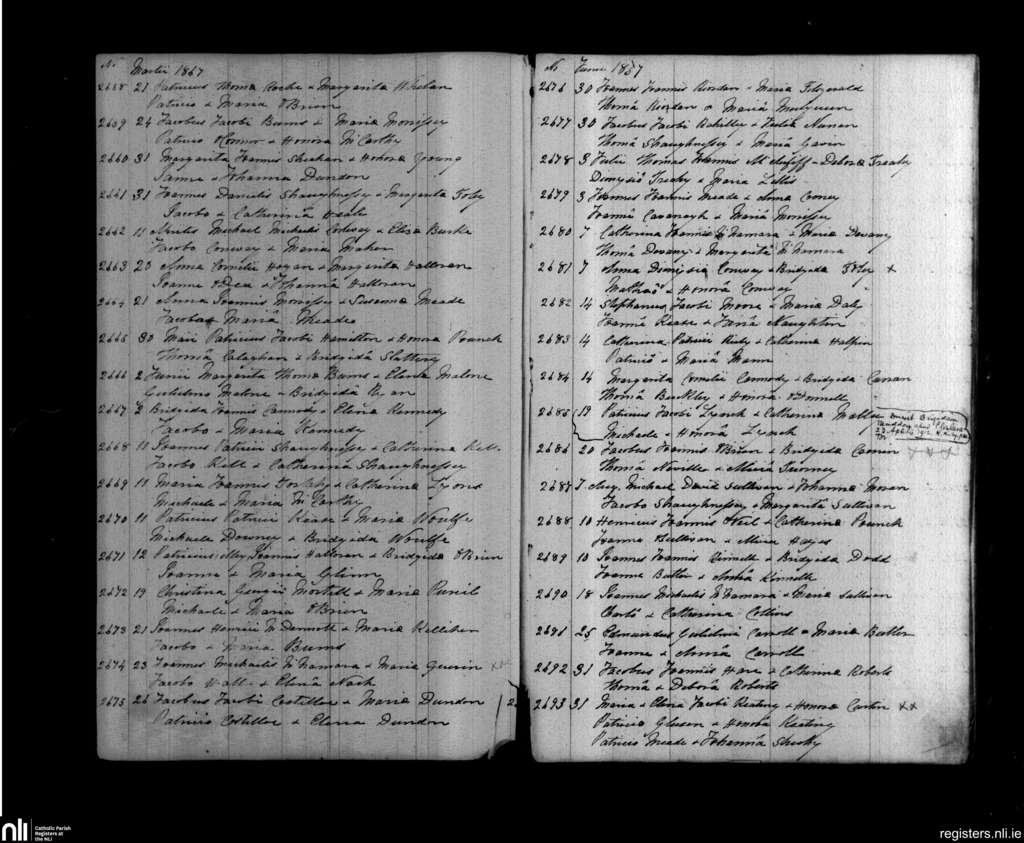 No Martii 1867
2658 21 Patricius Thoma Roche & Margarita Whelan
Patricio & Maria O'Brien
2659 24 Jacobus Jacobi Burns & Maria Morrissey
Patricio Connor & Honora McCarthy
2660 31 Margarita Joannes Sheehan & Honora Young
Johanna Dundon
2661 31 Joannes Danielis Shaughnessy & Margarita Foley
Jacobo & Catherina
2662 11 Michael Michaelis Conway & Eliza Burke
Jacobo Conway & Maria Maher
2663 20 Anna Cornelii Hogan & Margarita Halloran
Joanne O'Dea & Johanna Halloran
21 Anna Joannis Morrissey & Susanna Meade
Jacobo & Mariâ Meade
2665 30 Maii Patricius Jacobi Hamilton & Honora
Thomâ Calaghan & Bridgidâ Slattery
2666 2 Junii Margarita Thoma Burns & Elena Malone
Gulielmo Malone & Bridgida Ryan
2667 2 Bridgida Joannis Carmody & Elena Kennedy
Jacobo & Maria Kennedy
2668 10 Joannes Patricii Shaughnessy & Catherina Kett
Jacobo Kett & Catherina Shaughnessy
2669 11 Maria Joannis & Catherina Lyons
Michaele & Maria McCarthy
2670 11 Patricius Patricii Keane & Maria Woulfe
Michaele Downey & Bridgida Woulfe
2671 12 Patricius Joannis Halloran & Bridgida O'Brien
Joanne & Maria Glinn
2672 19 Christina Mortell & Maria
Michaele & Maria O'Brien
2673 21 Joannes Henrici McDermott & Maria Kelliher
Jacobo & Maria Burns
2674 23 Joannes Michaelis McNamara & Maria Guerin xxx
Jacobo Wall & Elena Nash
2675 26 Jacobus Jacobi Costelloe & Maria Dundon
Patricio Costelloe & Elena Dundon
No Junii 1867
2676 30 Joannes Joannis Riordan & Maria Fitzgerald
Thomâ Riordan & Mariâ Mulqueen
2677 30 Jacobus Jacobi Kelly & Nunan
Thomâ Shaughnessy & Maria Gavin
2678 3 Julii Thomas Joannes & Debora Treahy
Dionysio Treahy & Maria Lillis
2679 3 Joannes Joannis Meade & Anna Croney
Joannâ Cavanagh & Mariâ Morrissey
2680 7 Catherina Joannis McNamara & Maria Devany
Thomâ Devany & Margaritâ McNamara
2681 7 Anna Dionysii Conway & Bridgida Foley x
& Honorâ Conway
2682 14 Stephanus Jacobi Moore & Maria Daly
Joanne Keane & Naughton
2683 14 Catherina Patricii Kirby & Catherina Halpin
Patricio & Mariâ Mann
2684 14 Margarita Cornelii Carmody & Bridgida Curran
Thomâ Buckley & Honora O'Donnell
2685 19 Patricius Jacobi Lynch & Catherina
Michaele & Honorâ Lynch
23 April 1912
2686 20 Jacobus Joannis O'Brien & Bridgida x x x
Thomâ Neville & Maria Tierney
2687 7 Aug. Michael Daniel Sullivan & Johanna Moran
Jacobo Shaughnessy & Margarita Sullivan
2688 10 Henricus Joannis & Catherina
Joanne Sullivan & Maria Hayes
2689 10 Joannes Joannis Kinnelle & Bridgida Dodd
Joanne Butler & Anna Kinnelle
2690 18 Joannes Michaelis McNamara & Maria Sullivan
& Catherina Collins
2691 25 Gulielmi Carroll & Maria Butler
Joanne & Annâ Carroll
2692 31 Jacobus Joannis Hare & Catherina Roberts
Thomâ & Deborâ Roberts
2693 31 Maria & Elena Jacobi Keating & Honora xx
Patricio Gleeson & Honorâ Keating
Patricio Meade & Johannâ Sheehy
nli
Catholic Parish
Registers at
the NLI
registers.nli.ie